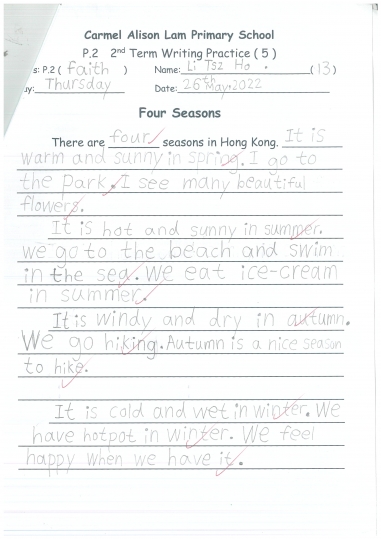 Carmel Alison Lam Primary School
P.2 2nd Term Writing Practice ( 5 )
s: P.2 ( faith ) Name: Li Tsz Ho (13)
y: Thursday Date: 26th May, 2022
Four Seasons
There are four seasons in Hong Kong. It is
warm and sunny in spring. I go to
the park. I see many beautiful
flowers.
It is hot and sunny in summer.
we go to the beach and swim
in the sea. We eat ice-cream
in summer.
It is windy and dry in autumn.
We go hiking. Autumn is a nice season
to hike.
It is cold and wet in winter. We
have hotpot in winter. We feel
happy when we have it.